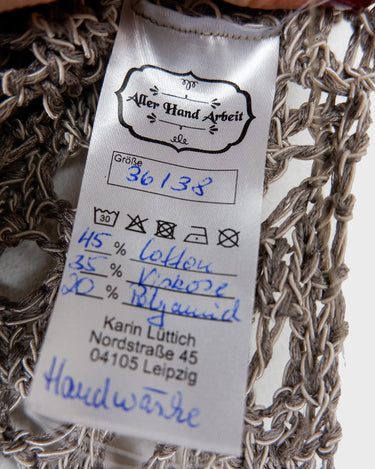 Aller Hand Arbeit
Größe
36/38
30
45 % Cotton
35 % Viskose
20 % Polyamid
Karin Lüttich
Nordstraße 45
04105 Leipzig
Handwäsche